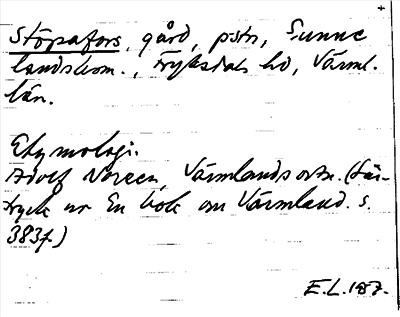 +
Stöpafors, gård, pstn, Sunne
landskom., Fryksdals hd, Värml.
län.
Etymologi.
Adolf Noreen, Värmlands ortn. (Sär-
tryck ur En bok om Värmland. s.
383f.)
E.L. 1957.